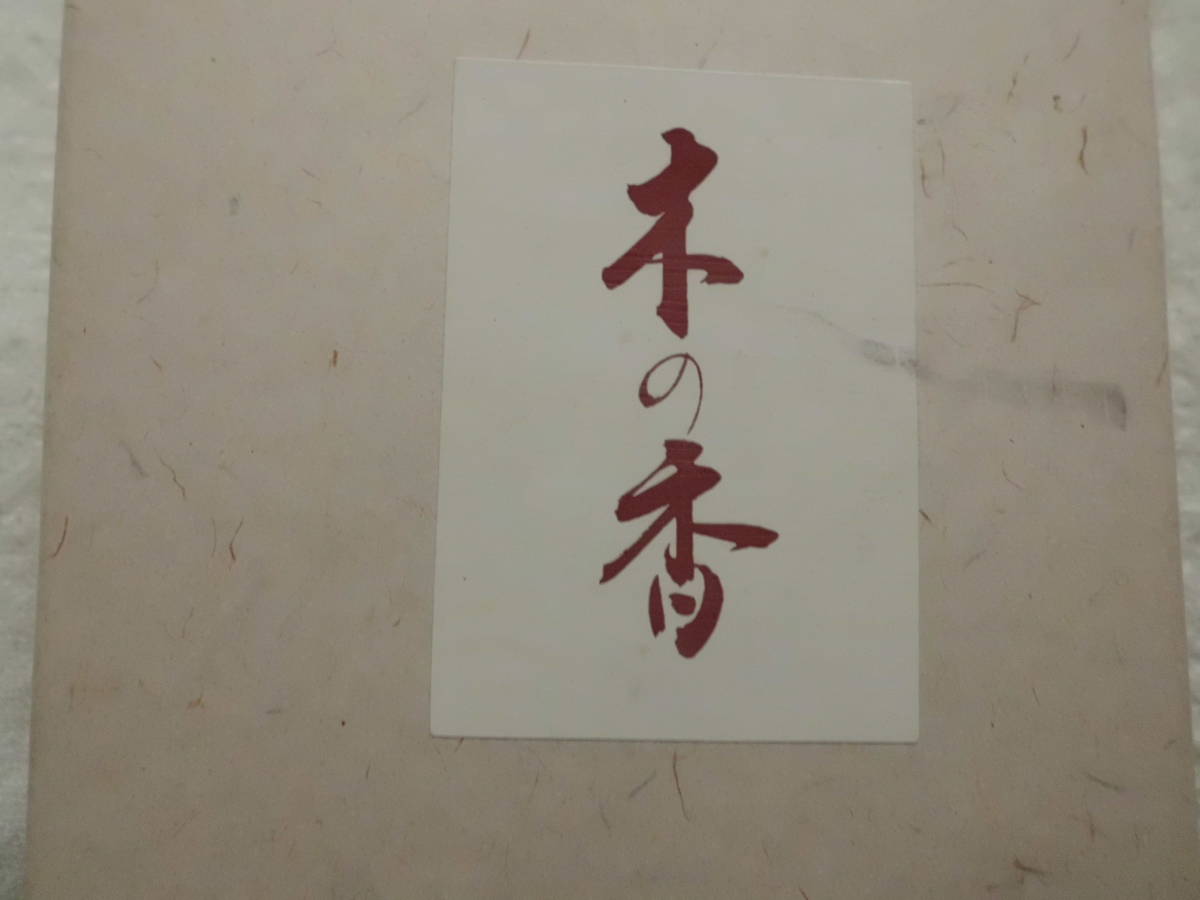 木の香